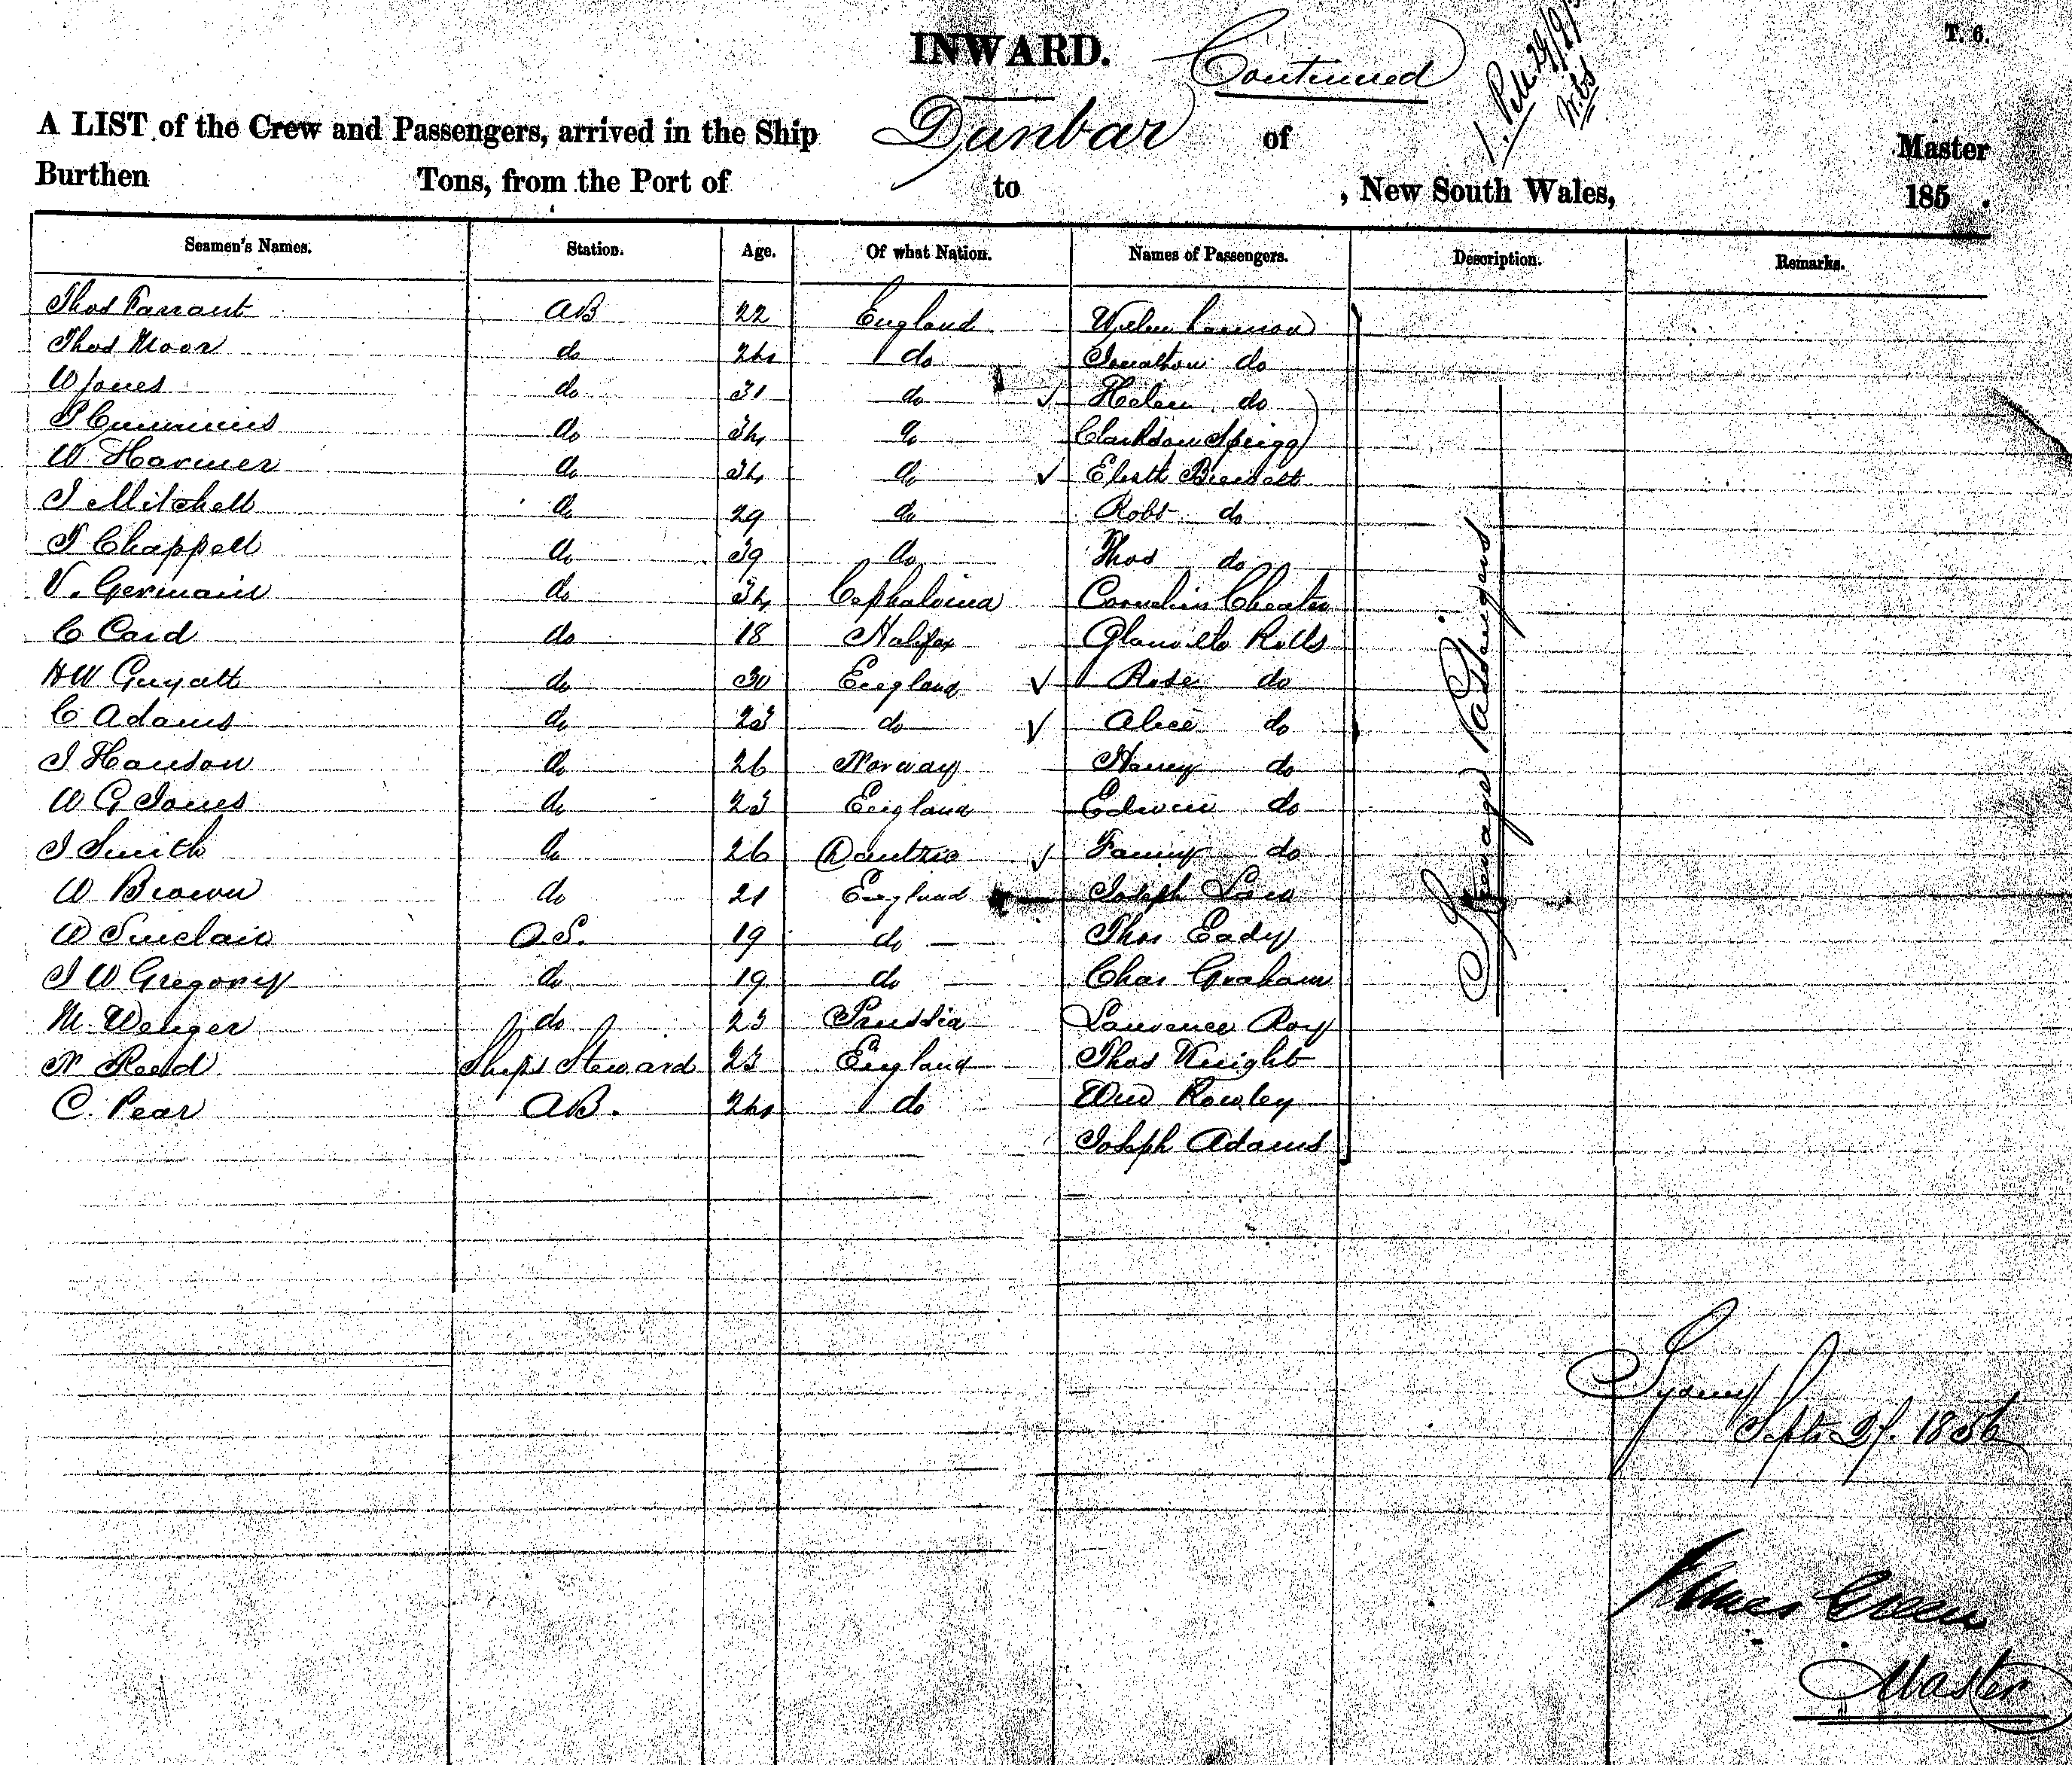 INWARD. Continued T. 6.
A LIST of the Crew and Passengers, arrived in the Ship Dunbar of Master
Burthen Tons, from the Port of to , New South Wales, 185 .
Seamen's Names. Station. Age. Of what Nation. Names of Passengers. Description. Remarks.
Thos Farrant AB 22 England
Thos Moor do 24 do Jonathan do
W Jones do 31 do ✓ Helen do
P Cummins do 34 do Clarkson Sprigg
W Harmer do 34 do ✓ Elizth
J Mitchell do 29 do Robt do
T Chappell do 39 do Thos do
V. Germain do 34 Cephalonia Cornelius
C Card do 18 Halifax Glanville Rolls
HW Guyatt do 30 England ✓ Rose do
C Adams do 23 do ✓ Alice do
J Hanson do 26 Norway Henry do
W G Jones do 23 England Edwin do
J Smith do 26 Dantzic ✓ Fanny do
W Brown do 21 England Joseph
W Sinclair O.S. 19 do Thos Eady
J W Gregory do 19 do Chas Graham
M. Wenger do 23 Prussia Lawrence Roy
N Reed Ships Steward 23 England Thos Knight
C. Pear AB. 24 do Wm Rowley
Joseph Adams
Steerage Passengers
Sydney
Septr 29. 1856
James Green
Master